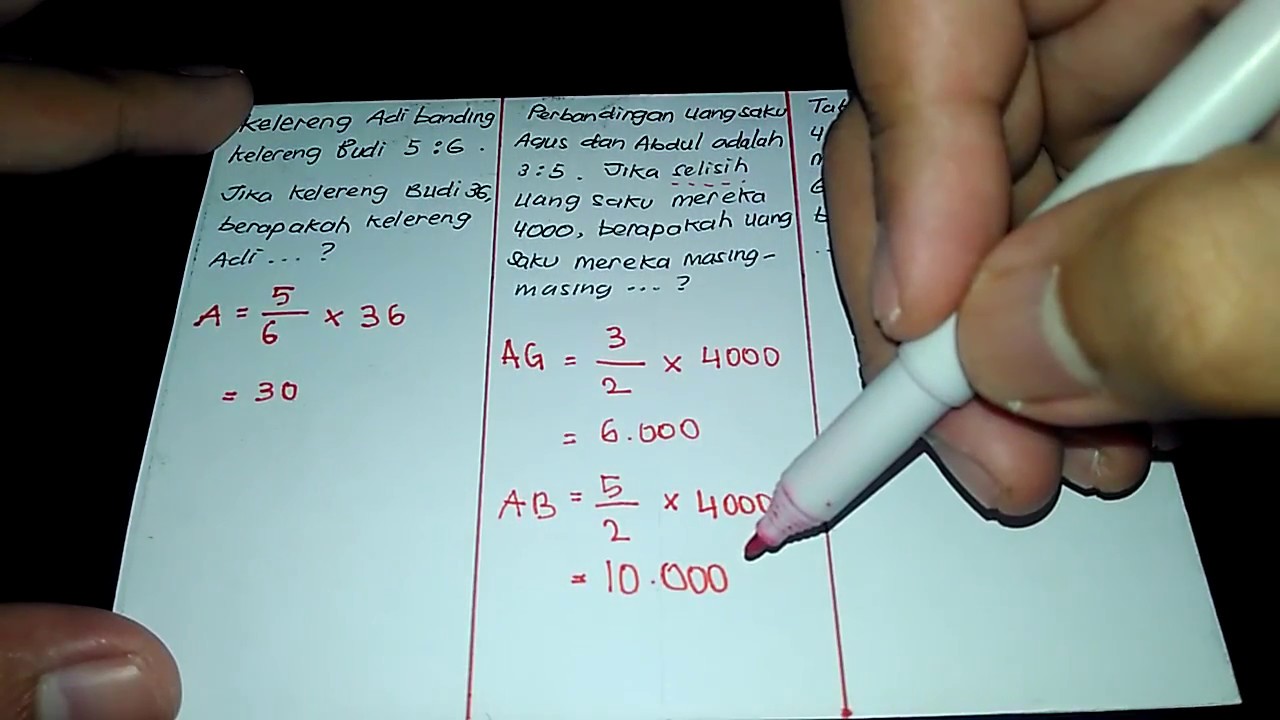 Kelereng Adi banding
kelereng Budi 5 : 6 .
Jika kelereng Budi 36,
berapakah kelereng
Adi ... ?
A = 5/6 x 36
= 30
Perbandingan uang saku
Agus dan Abdul adalah
3 : 5 . Jika selisih
uang saku mereka
4000, berapakah uang
saku mereka masing-
masing ... ?
AG = 3/2 x 4000
= 6.000
AB = 5/2 x 4000
= 10.000